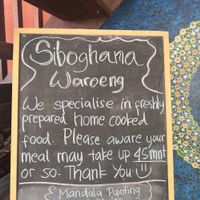 Siboghana
Waroeng
We specialise in freshly
prepared home cooked
food. Please aware your
meal may take up 45mnt
or so. Thank You!!
& Mandala Painting